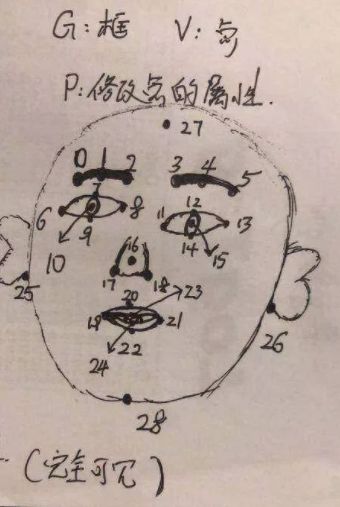 G:框 V:点
P:修改点的属性.
27
0 1 2 3 4 5
7 12
6 8 11 13
9 14
10 16 15
25 17 18
20 23
19 21
22 26
24
28
(完全可见)